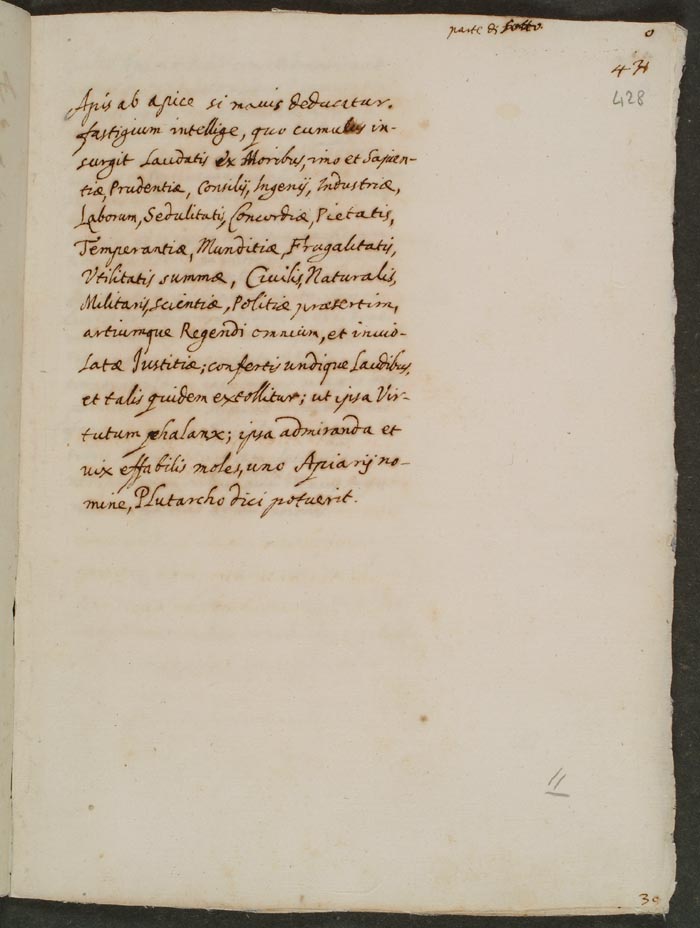 parte di sotto.
0
428
Apis ab apice si mauis deducatur.
fastigium intellige, quo cumulus in-
surgit Laudatis ex Moribus, imo et Sapien-
tiæ, Prudentiæ, Consilij, Ingenij, Industriæ,
Laborum, Sedulitatis, Concordiæ, Pietatis,
Temperantiæ, Munditiæ, Frugalitatis,
Vtilitatis summæ, Ciuilis, Naturalis,
Militaris, scientiæ, Politiæ præsertim,
artiumque Regendi omnium, et inuio-
latæ Justitiæ; confertis undique Laudibus,
et talis quidem extollitur; ut ipsa Vir-
tutum phalanx; ipsa admiranda et
uix effabilis moles, uno Apiarij no-
mine, Plutarcho dici potuerit.
11
30